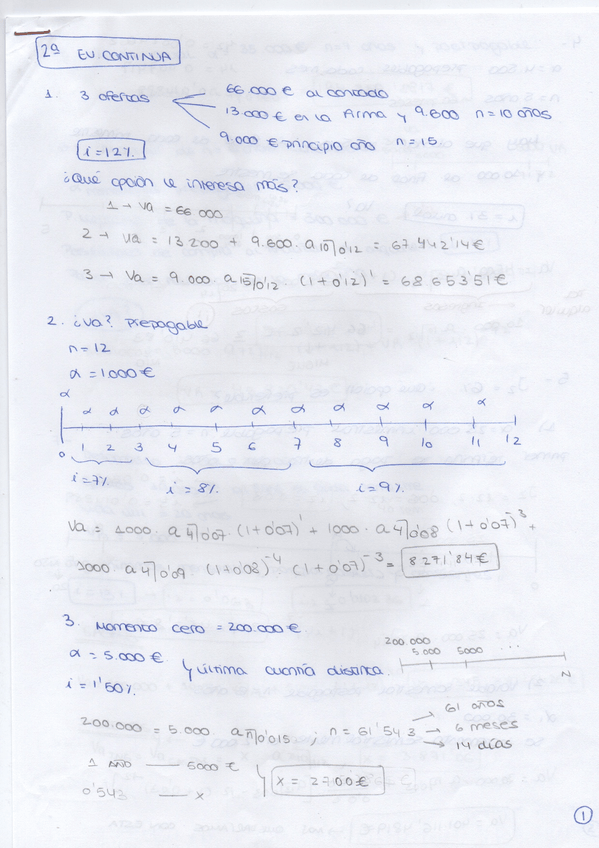 2ª EV. CONTINUA
1. 3 ofertas
66 000 € al contado
13 000 € en la firma y 9.600 n=10 años
9.000 € principio año n=15
i=12%
¿Qué opción le interesa más?
1 → Va = 66 000
2 → Va = 13 200 + 9.600 · a10⌉0'12 = 67.442'14€
3 → Va = 9.000 · a15⌉0'12 (1+0'12)¹ = 68 653'51€
2. ¿Va? Prepagable
n=12
α = 1000€
α α α α α α α α α α α α
0 1 2 3 4 5 6 7 8 9 10 11 12
i=7% i=8% i=9%
Va = 1000 · a4⌉0'07 (1+0'07)¹ + 1000 · a4⌉0'08 (1+0'07)⁻³ +
1000 · a4⌉0'09 · (1+0'08)⁻⁴ (1+0'07)⁻³ = 8 271'84€
3. Momento cero = 200.000 €
200.000
5.000 5000 ...
N
α = 5.000 € y última cuantía distinta
i = 1'50%
200.000 = 5.000 an⌉0'015 ; n = 61'543
61 años
6 meses
14 días
1 AÑO — 5000 €
0'543 — x
x = 2700€
1